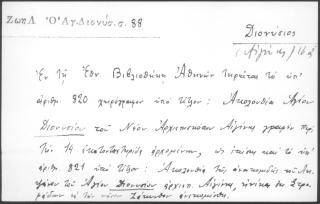 Ζωη Λ Ὁ Ἁγ. Διονύσ. σ. 88
Διονύσιος
(Αἰγίνης) 16 αἰ
Ἐν τῇ Ἐθν. Βιβλιοθήκῃ Ἀθηνῶν τηρεῖται τὸ ὑπ'
ἀριθμ. 820 χειρόγραφον ὑπὸ τίτλον: Ἀκολουθία Ἁγίου
Διονυσίου τοῦ Νέου Ἀρχιεπισκόπου Αἰγίνης γραφὲν περὶ
τὴν 17 ἑκατονταετηρίδα ἀρχομένην, ὡς ἐπίσης καὶ τὸ ὑπ'
ἀριθμ. 821 ὑπὸ τίτλον: Ἀκολουθία τῆς ἀνακομιδῆς τοῦ
τοῦ Ἁγίου Διονυσίου ἀρχιεπ. Αἰγίνης,
Ζάκυνθον